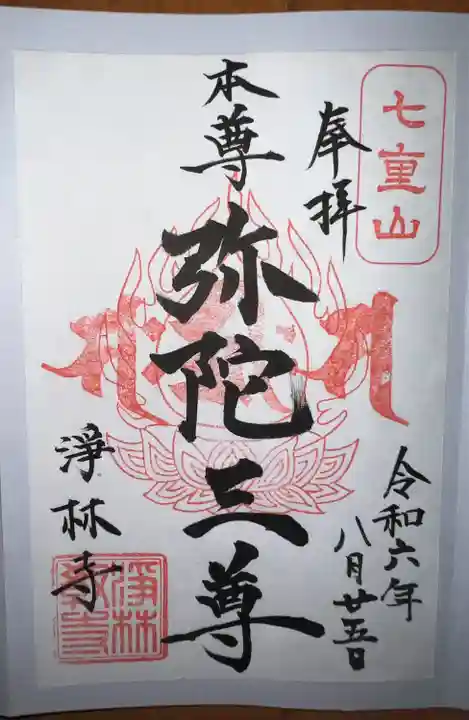 七重山
奉拝
令和六年
八月廿五日
本尊
弥陀三尊
淨林寺